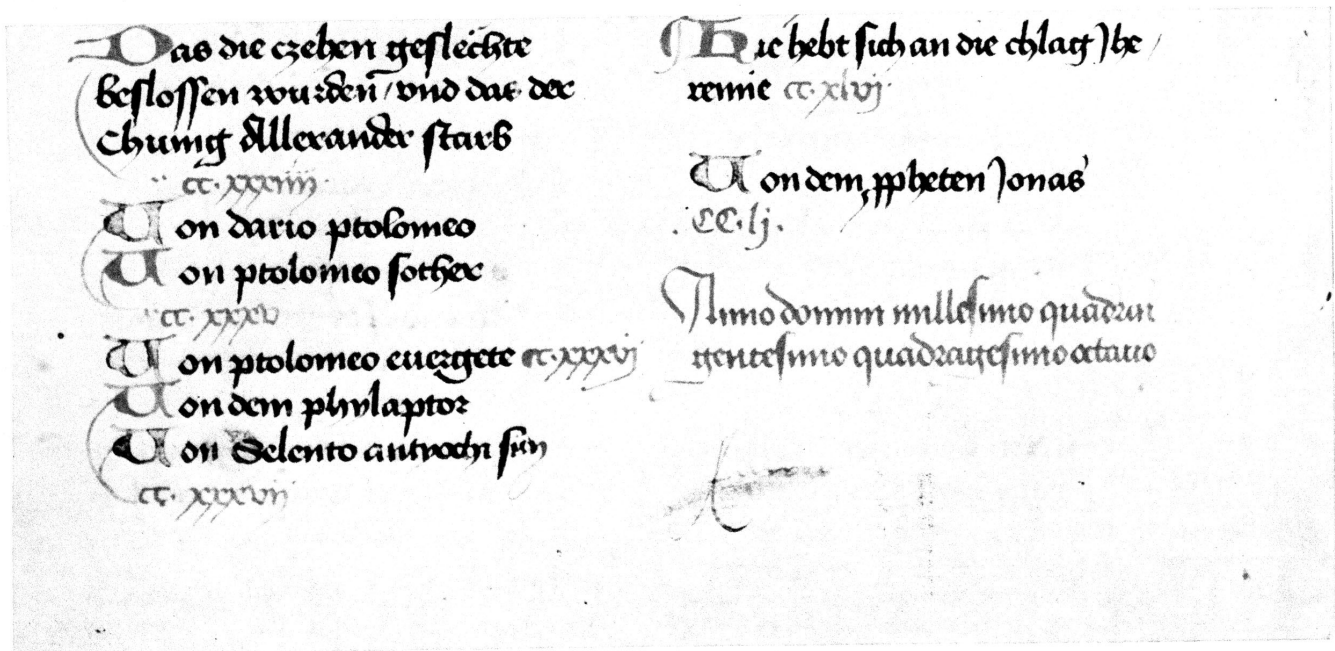 Das die czehen geslëchte
beslossen wurden̄ / vnd das der
Chunig Allexander starb
cc. xxxiiii
Von dario ptolomeo
Von ptolomeo sother
cc. xxxv
Von ptolomeo euergete cc. xxxvj
Von dem phylaptor
Von Selento antyochi sun
cc. xxxvij
Hie hebt sich an die chlag Jhe /
remie cc. xlvj
Von dem ꝓpheten Jonas
CC. lj.
Anno domini millesimo quadrin
gentesimo quadragesimo octauo